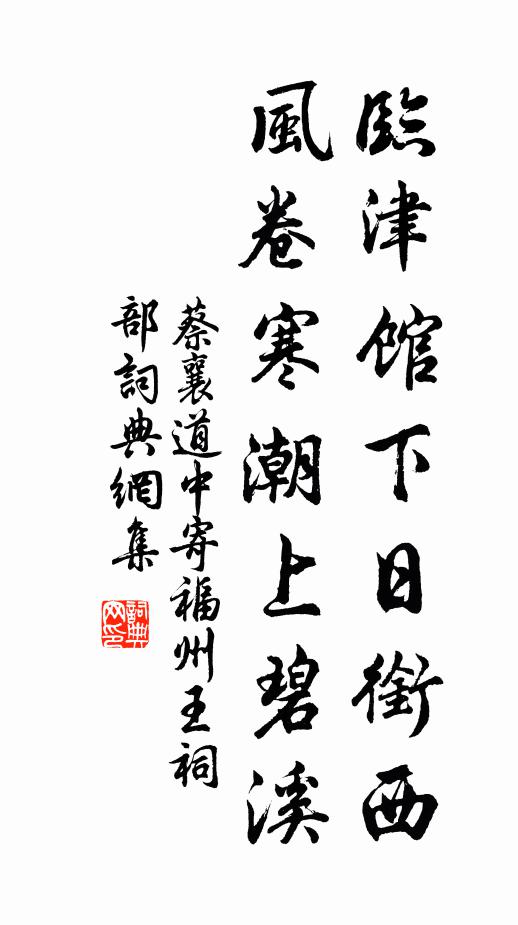 臨津館下日銜西
風卷寒潮上碧溪
蔡襄道中寄福州王祠
部詞典網集
詞典網印